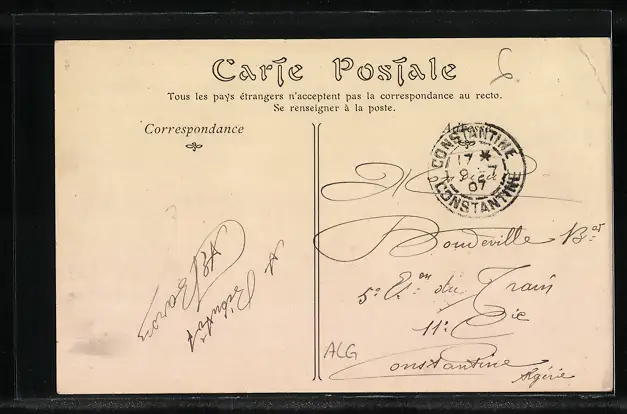 Carte Postale
Tous les pays étrangers n'acceptent pas la correspondance au recto.
Se renseigner à la poste.
Correspondance
CONSTANTINE
17 *
07
CONSTANTINE
M
Bondeville
5e Eon du Train
11e Cie
Constantine
Algérie
ALG
A Bientôt
Baron
6